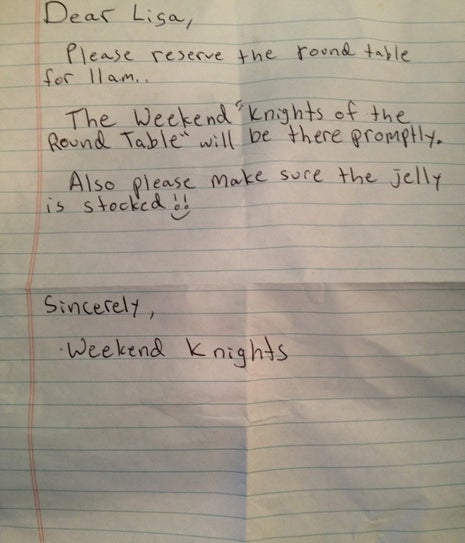 Dear Lisa,
Please reserve the round table
for 11am..
The Weekend "Knights of the
Round Table" will be there promptly.
Also please make sure the jelly
is stocked!!
Sincerely,
Weekend Knights